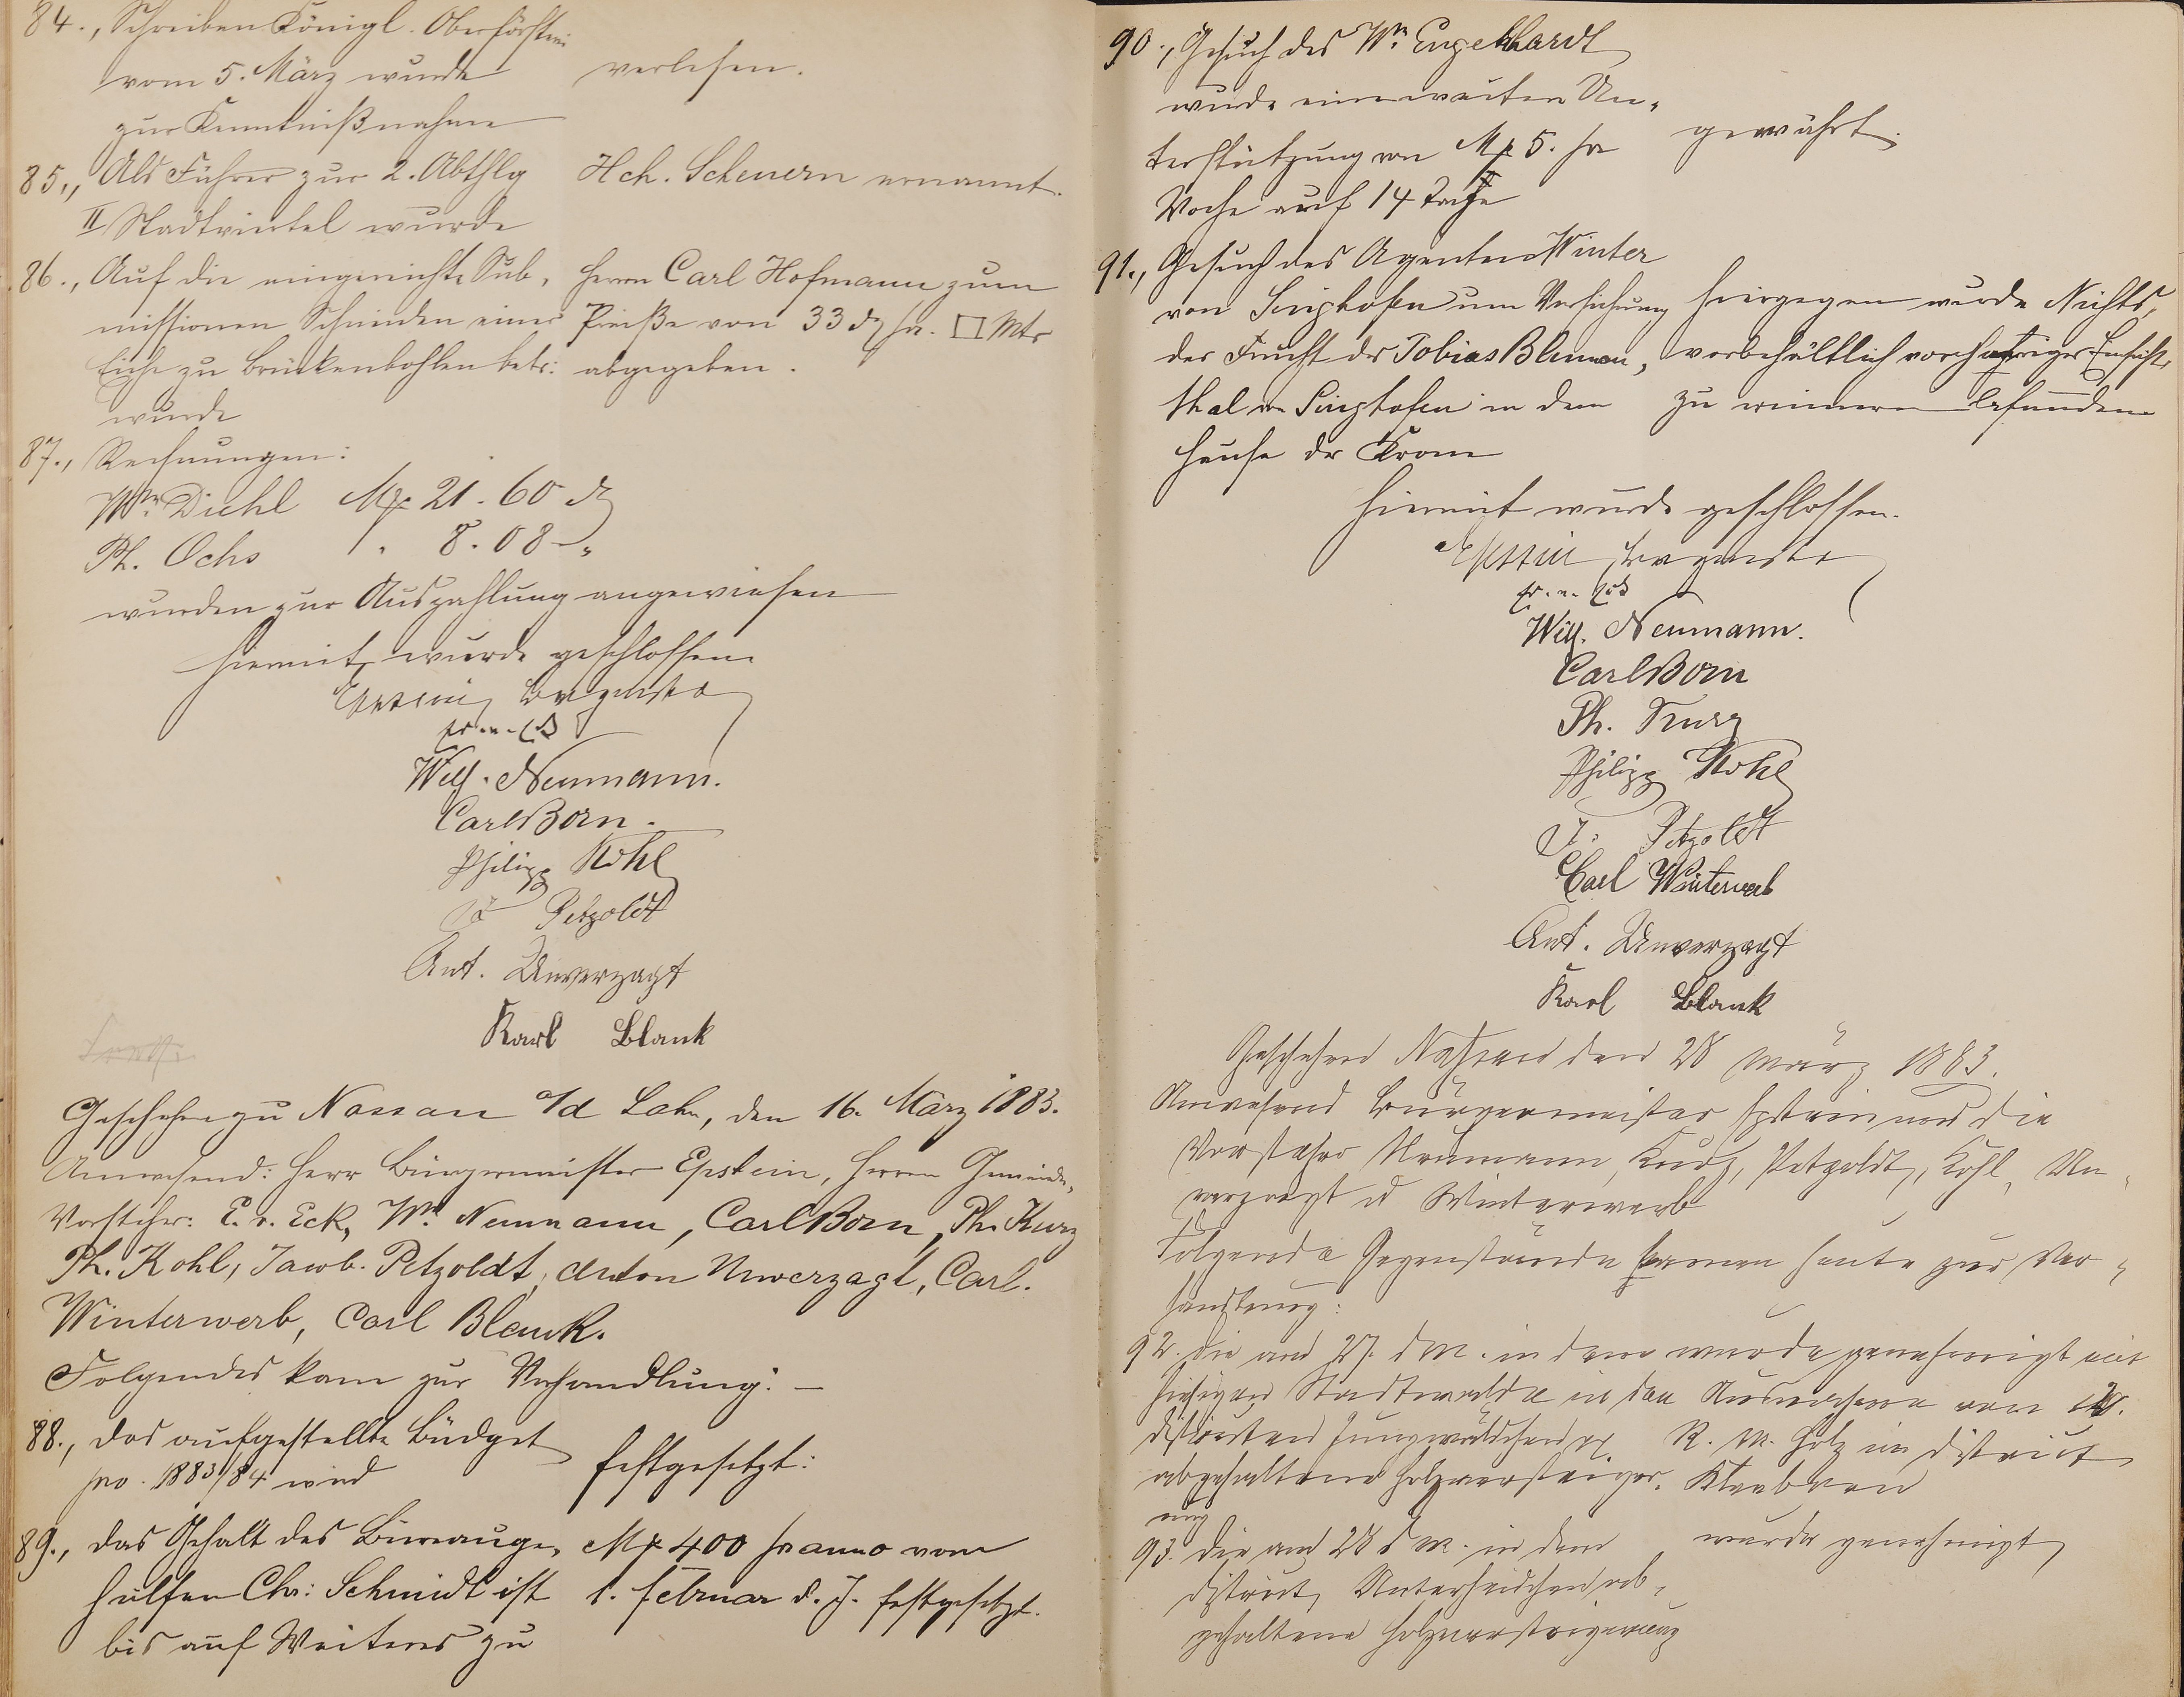 84., Schreiben Königl. Oberförsterei
vom 5. März wurde
zur Kenntnißnahme
verlesen.
85., Als Führer zur 2. Abthlg
II Stadtviertel wurde
Hch. Scheuern ernannt.
86., Auf die eingereichte Sub-
missionen Schneiden einer
Eiche zu Brückenbohlen betr:
wurde
Herrn Carl Hofmann zum
Preiße von 33 ₰ pr. □ Mtr
abgegeben.
87., Rechnungen:
Wm. Diehl M 21.60 ₰
Ph. Ochs " 8.08 "
wurden zur Auszahlung angewiesen
Hiermit wurde geschlossen.
Epstein Brgmstr
E. v. Eck
Wilh. Neumann.
Carl Born.
Philipp Kohl
J. Petzoldt
Ant. Unverzagt
Karl Blank
Geschehen zu Nassau a/d Lahn, den 16. März 1883.
Anwesend: Herr Bürgermeister Epstein, Herren Gemeinde-
Vorsteher: E. v. Eck, Wh. Neumann, Carl Born, Ph. Kurz
Ph. Kohl, Jacob Petzoldt, Anton Unverzagt, Carl.
Winterwerb, Carl Blank.
Folgendes kam zur Verhandlung: —
88., das aufgestellte Büdget
pro. 1883/84 wird
festgesetzt:
89., das Gehalt des Bureauge-
hülfen Chr: Schmidt ist
bis auf Weiteres zu
M 400 pr anno vom
1. Februar d. J. festgesetzt.
90., Gesuch des Wm. Engelhardt
wurde eine weitere Un-
terstützung von M 5. pr
Woche auf 14 Tage
gewährt.
91., Gesuch des Agenten Winter
von Singhofen um Versicherung
der Frucht des Tobias Blumen-
thal von Singhofen in dem
Hause der Krone
Hiergegen wurde Nichts,
vorbehältlich vorheriger Einsicht,
zu erinnern befunden
Hiermit wurde geschlossen.
Epstein Brgmstr
E. v. Eck
Wilh. Neumann.
Carl Born
Ph. Kurz
Philipp Kohl
J. Petzoldt
Carl Winterwerb
Ant. Unverzagt
Karl Blank
Geschehen Nassau den 28 März 1883.
Anwesend Bürgermeister Epstein und die
Vorsteher Neumann, Kurz, Petzoldt, Kohl, Un-
verzagt u Winterwerb
Folgende Gegenstände kamen heute zur Ver-
handlung:
92. die am 27. d M. in dem
hiesigen Stadtwalde in den
Distrikten Jungwäldchen pp
abgehaltene Holzversteiger-
ung
wurde genehmigt mit
Ausnahme von
R. M. Holz im District
93. die am 28 d M. in dem
District Unterheidchen ab-
gehaltene Holzversteigerung
wurde genehmigt